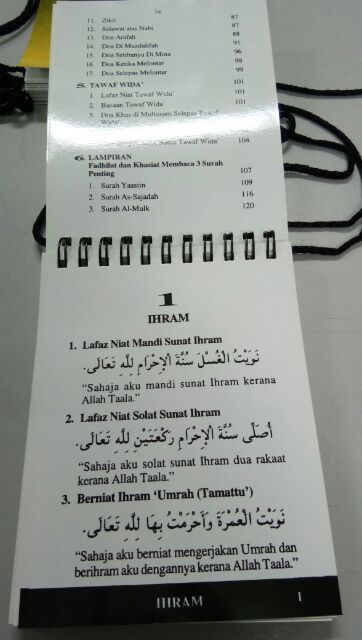 iv
11. Zikir 87
12. Selawat atas Nabi 87
13. Doa Arafah 88
14. Doa Di Muzdalifah 91
15. Doa Setibanya Di Mina 96
16. Doa Ketika Melontar 98
17. Doa Selepas Melontar 99
5. TAWAF WIDA' 101
1. Lafaz Niat Tawaf Wida' 101
2. Bacaan Tawaf Wida' 101
3. Doa Khas di Multazam Selepas Tawaf
Wida'
Sunat Tawaf Wida' 104
6. LAMPIRAN
Fadhilat dan Khasiat Membaca 3 Surah
Penting 107
1. Surah Yaasiin 109
2. Surah As-Sajadah 116
3. Surah Al-Mulk 120
1
IHRAM
1. Lafaz Niat Mandi Sunat Ihram
نَوَيْتُ الْغُسْلَ سُنَّةَ الْإِحْرَامِ لِلَّهِ تَعَالَى.
"Sahaja aku mandi sunat Ihram kerana
Allah Taala."
2. Lafaz Niat Solat Sunat Ihram
أُصَلِّى سُنَّةَ الْإِحْرَامِ رَكْعَتَيْنِ لِلَّهِ تَعَالَى.
"Sahaja aku solat sunat Ihram dua rakaat
kerana Allah Taala."
3. Berniat Ihram 'Umrah (Tamattu')
نَوَيْتُ الْعُمْرَةَ وَأَحْرَمْتُ بِهَا لِلَّهِ تَعَالَى.
"Sahaja aku berniat mengerjakan Umrah dan
berihram aku dengannya kerana Allah Taala."
IHRAM 1